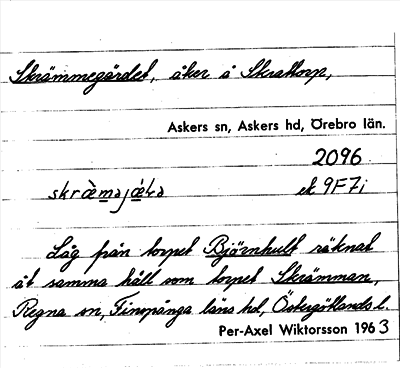 Skrämmegärdet, åker å Skrattorp,
Askers sn, Askers hd, Örebro län.
2096
skræ̀majæ̀ḷa ek 9F7i
Låg från torpet Björnhult räknat
åt samma håll som torpet Skrämman,
Regna sn, Finspånga läns hd, Östergötlands l.
Per-Axel Wiktorsson 1963